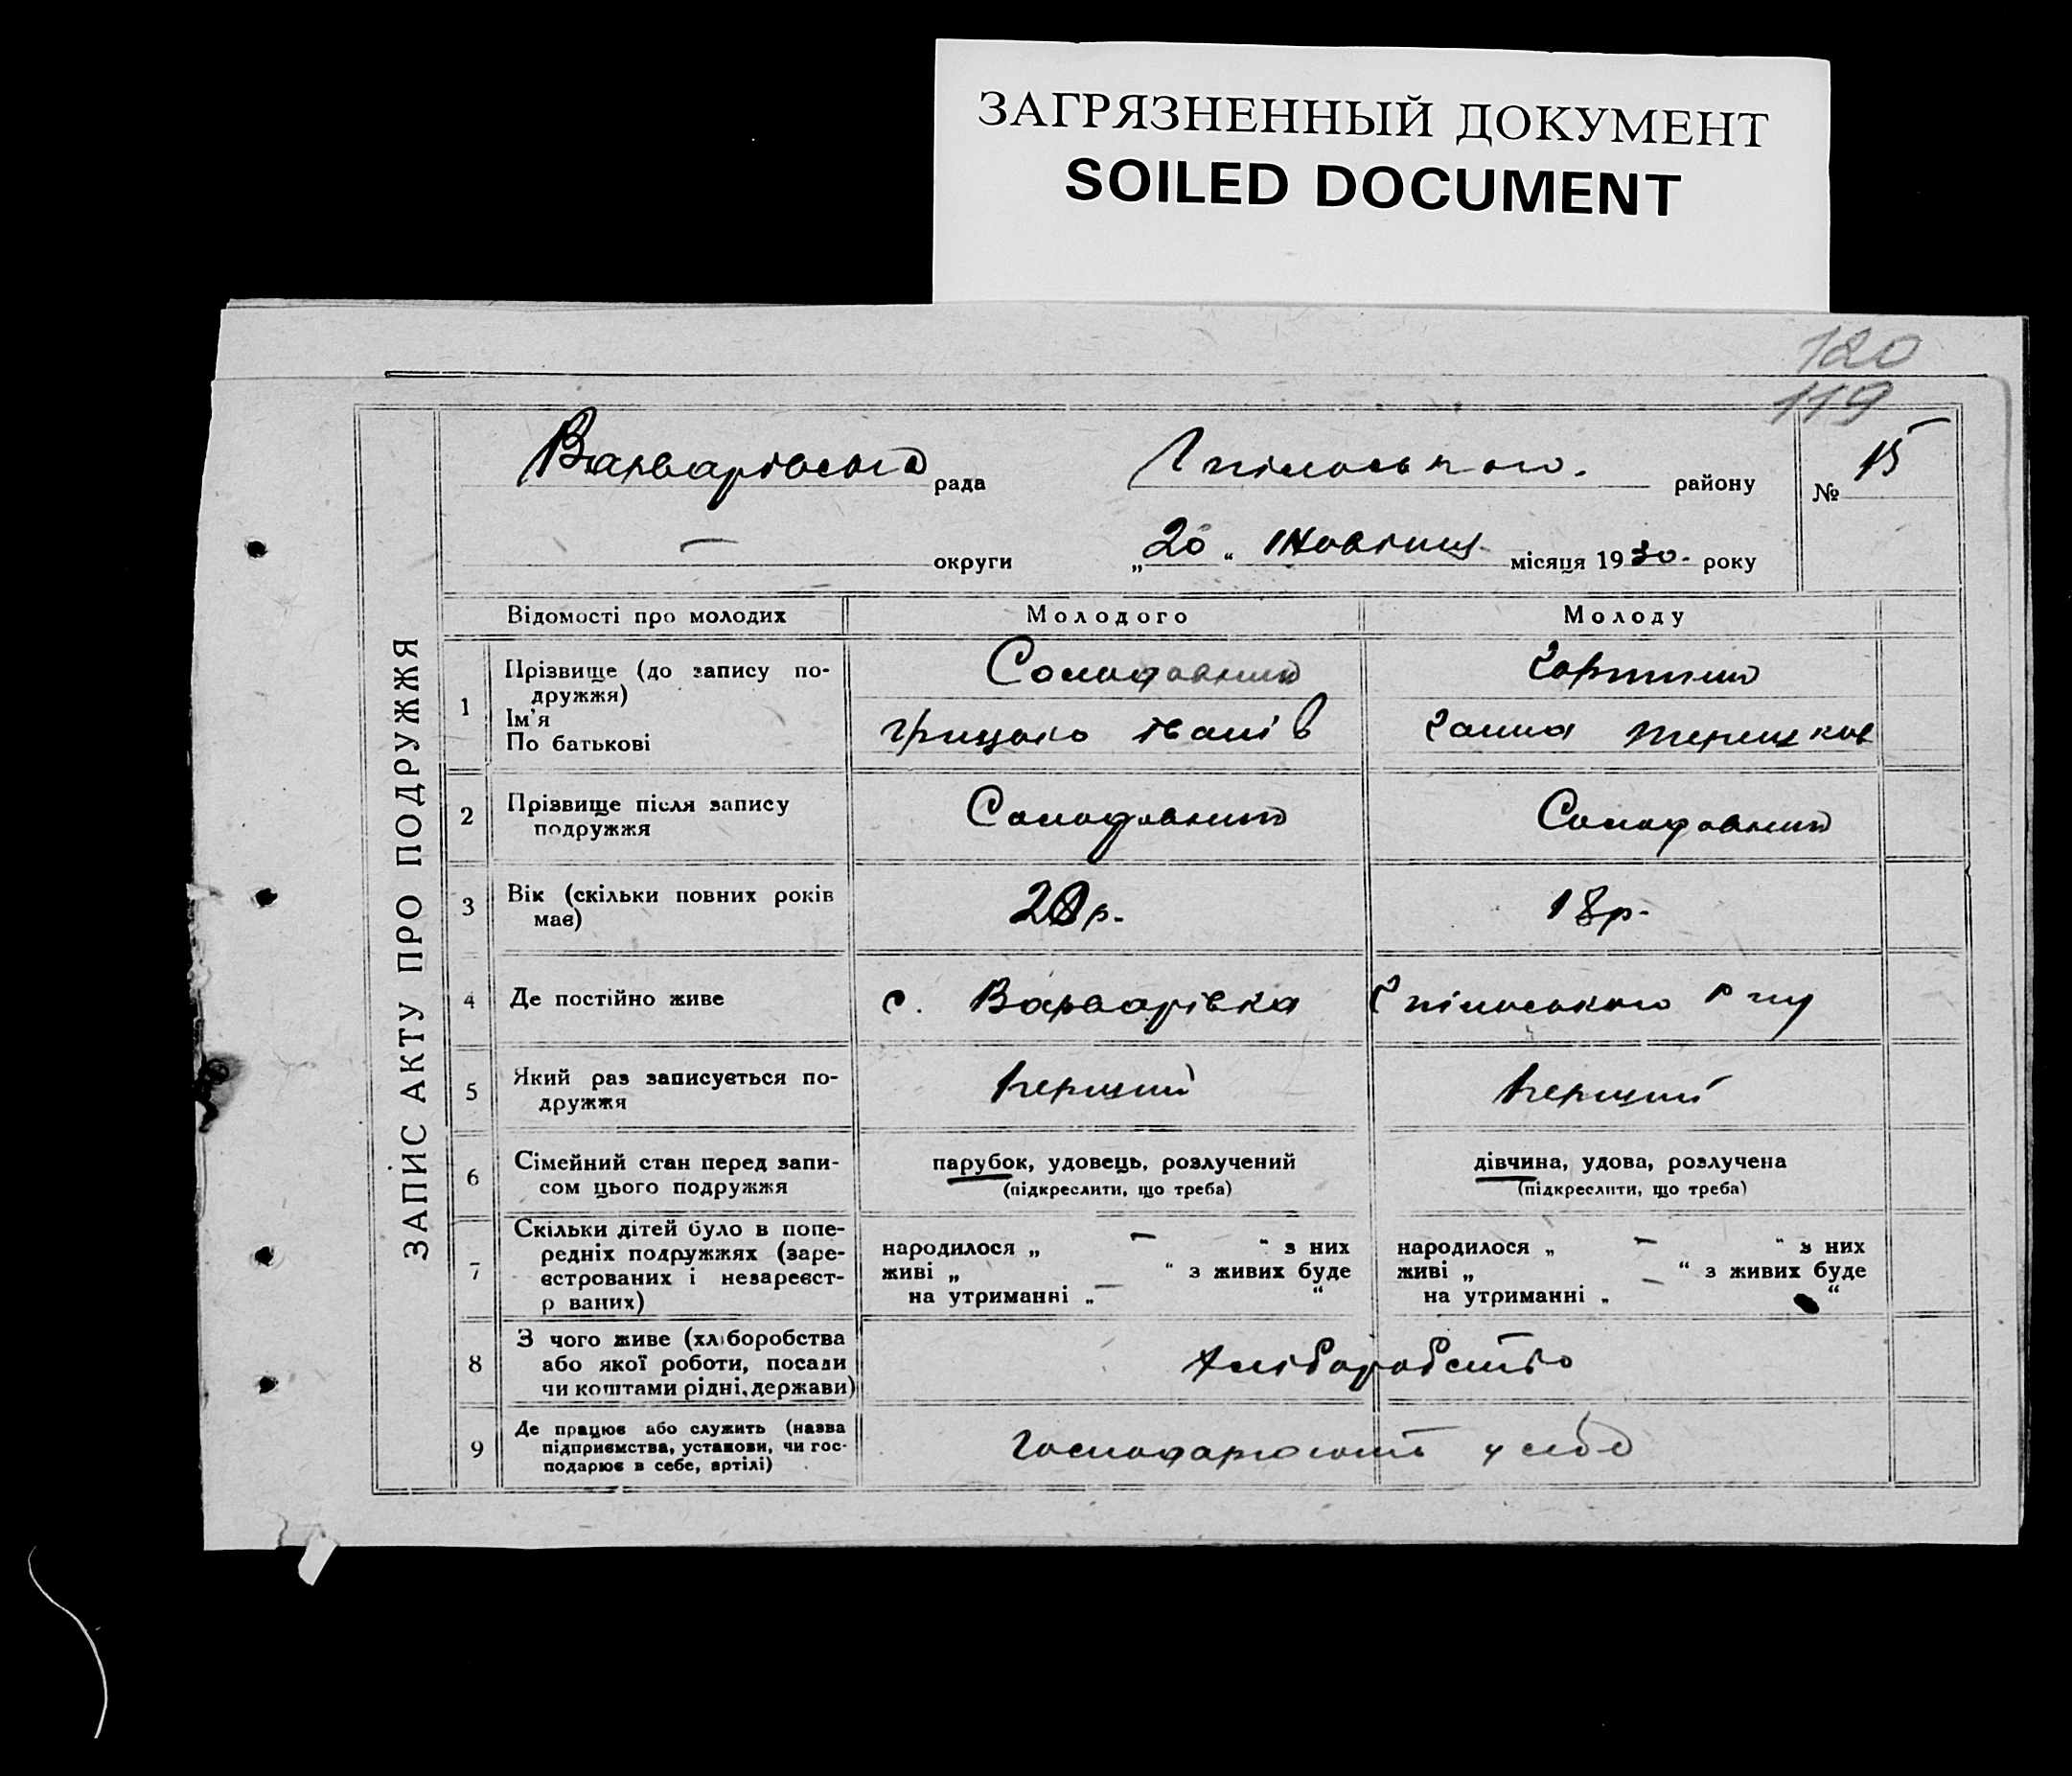 ЗАГРЯЗНЕННЫЙ ДОКУМЕНТ
SOILED DOCUMENT
120
119
ЗАПИС АКТУ ПРО ПОДРУЖЖЯ
Варварівська рада районy
№ 15
— округи „20“ Жовтня місяця 1930. року
Відомості про молодих Молодого Молоду
1 Прізвище (до запису по-
дружжя)
Ім'я
По батькові
Солодовник
Грицько Іванів
Ганна
2 Прізвище після запису
подружжя
Солодовник Солодовник
3 Вік (скільки повних років
має)
20р. 18р.
4 Де постійно живе с. Варварівка
5 Який раз записується по-
дружжя
перший перший
6 Сімейний стан перед запи-
сом цього подружжя
парубок, удовець, розлучений
(підкреслити, що треба)
дівчина, удова, розлучена
(підкреслити, що треба)
7 Скільки дітей було в попе-
редніх подружжях (заре-
єстрованих і незареєст-
р ваних)
народилося „ — “ з них
живі „ “ з живих буде
на утриманні „ — “
народилося „ — “ з них
живі „ — “ з живих буде
на утриманні „ “
8 З чого живе (хліборобства
або якої роботи, посади
чи коштами рідні, держави)
Хліборобство
9 Де працює або служить (назва
підприємства, установи, чи гос-
подарює в себе, артілі)
господарюють у себе